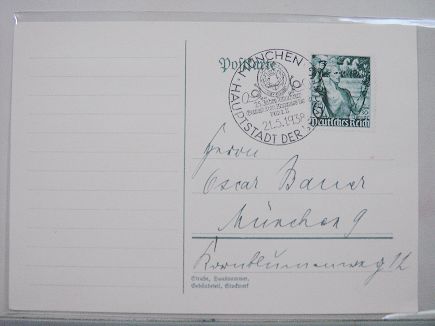 Postkarte
MÜNCHEN
HAUPTSTADT DER
21.5.1938
Deutsches Reich
Herrn
Oscar Bauer
München 9
Kornblumenweg 12
Straße, Hausnummer,
Gebäudeteil, Stockwerk